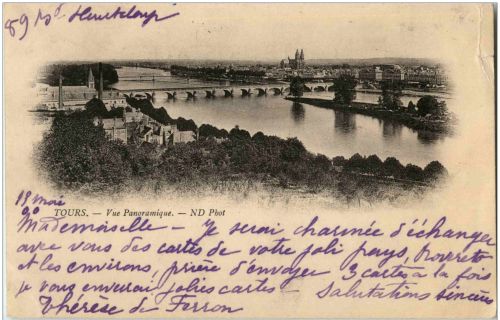 89 Bd Heurteloup
19 Mai
90
TOURS. — Vue Panoramique. — ND Phot
Mademoiselle - Je serai charmée d'échanger
avec vous des cartes de votre joli pays,
et les environs, prière d'envoyer 3 cartes à la fois
je vous enverrai jolies cartes - Salutations sincères
Thérèse de Ferron